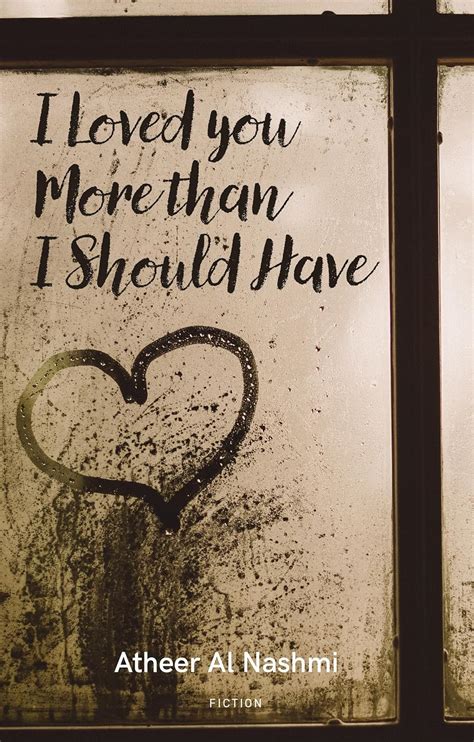 I Loved you
More than
I Should Have
Atheer Al Nashmi
FICTION